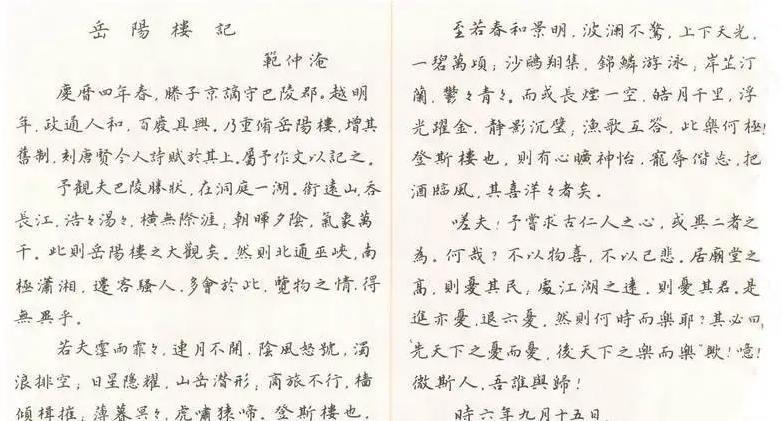 岳陽樓記
範仲淹
慶曆四年春，滕子京謫守巴陵郡。越明
年，政通人和，百廢具興。乃重脩岳陽樓，增其
舊制，刻唐賢今人詩賦於其上。屬予作文以記之。
予觀夫巴陵勝狀，在洞庭一湖。銜遠山，吞
長江，浩々湯々，橫無際涯；朝暉夕陰，氣象萬
千。此則岳陽樓之大觀矣。然則北通巫峽，南
極瀟湘，遷客騷人，多會於此，覽物之情，得
無異乎。
若夫霪雨霏々，連月不開，陰風怒號，濁
浪排空；日星隱耀，山岳潛形；商旅不行，檣
傾楫摧，薄暮冥々，虎嘯猿啼。登斯樓也，
至若春和景明，波瀾不驚，上下天光，
一碧萬頃；沙鷗翔集，錦鱗游泳；岸芷汀
蘭，鬱々青々。而或長煙一空，皓月千里，浮
光躍金，静影沉璧；漁歌互答，此樂何極！
登斯樓也，則有心曠神怡，寵辱偕忘，把
酒臨風，其喜洋々者矣。
嗟夫！予嘗求古仁人之心，或異二者之
為。何哉？不以物喜，不以己悲。居廟堂之
高，則憂其民；處江湖之遠，則憂其君。是
進亦憂，退亦憂，然則何時而樂耶？其必曰，
“先天下之憂而憂，後天下之樂而樂”歟！噫！
微斯人，吾誰與歸！
時六年九月十五日.